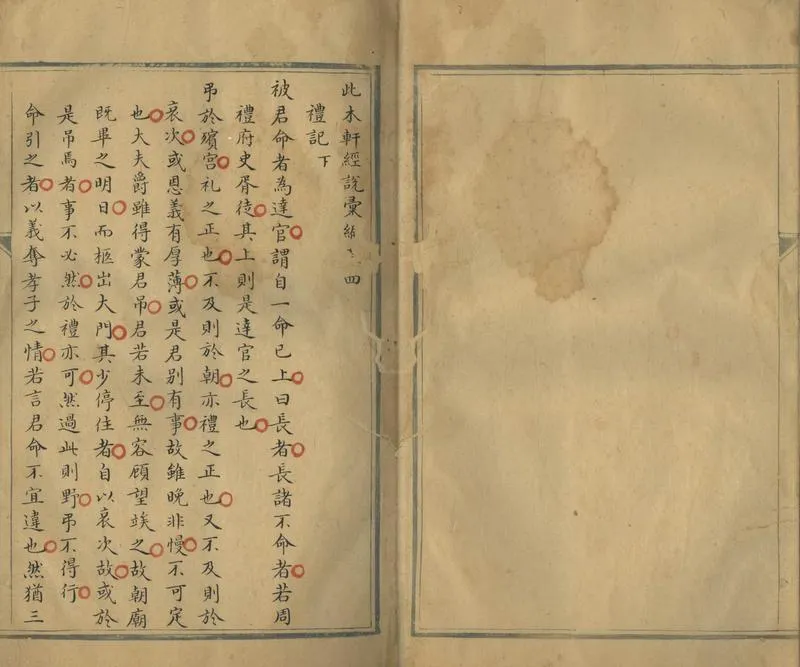 此木軒經說彙編 四
禮記下
被君命者為達官謂自一命已上曰長者長諸不命者若周
禮府史胥徒其上則是達官之長也
弔於殯宮礼之正也不及則於朝亦禮之正也又不及則於
哀次或恩義有厚薄或是君別有事故雖晚非慢不可定
也大夫爵雖得蒙君吊君若未至無容顧望竢之故朝廟
既畢之明日而柩出大門其少停住者自以哀次故或於
是吊焉者事不必然於禮亦可然過此則野弔不得行
命引之者以義奪孝子之情若言君命不宜違也然猶三